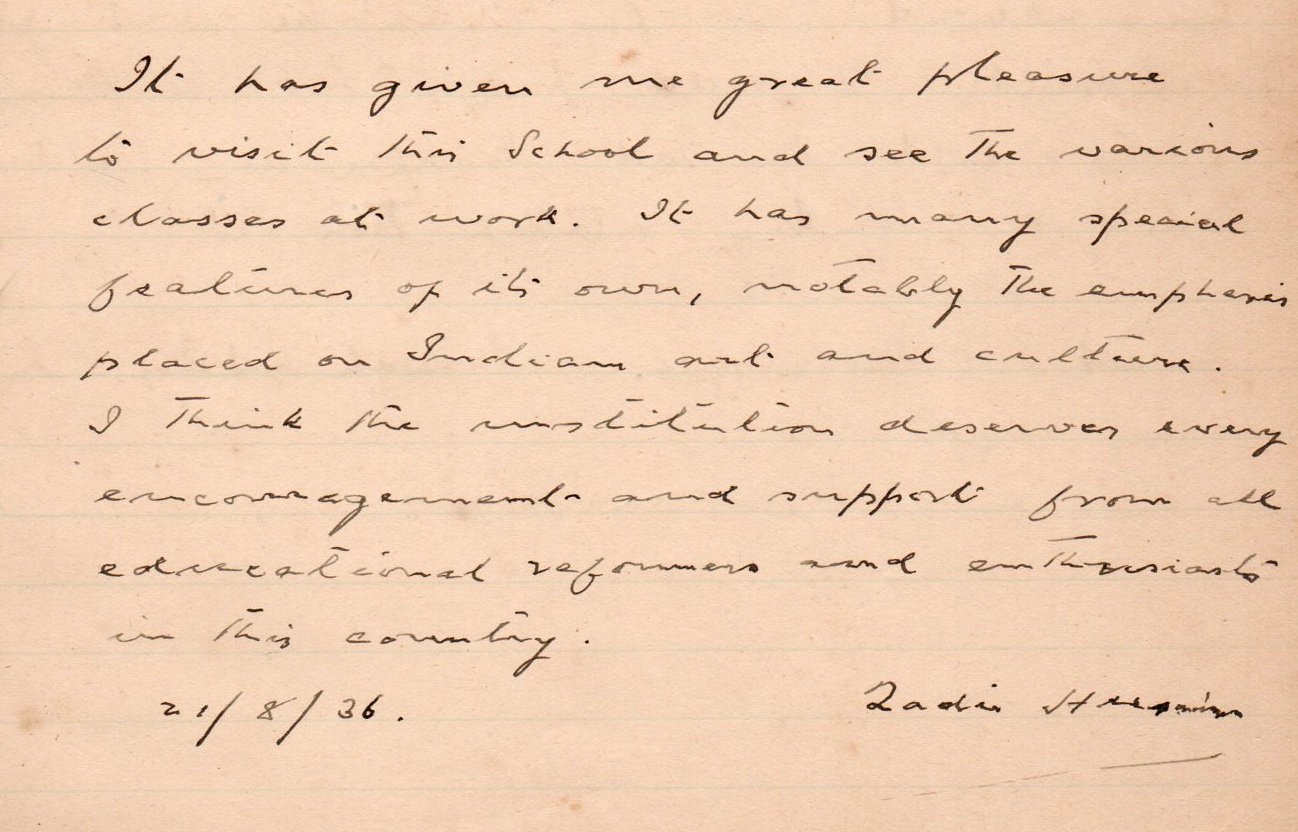 It has given me great pleasure
to visit this School and see the various
classes at work. It has many special
features of its own, notably the emphasis
placed on Indian art and culture.
I think the institution deserves every
encouragement and support from all
educational reformers and enthusiasts
in this country.
21/8/36. Qadir Husain